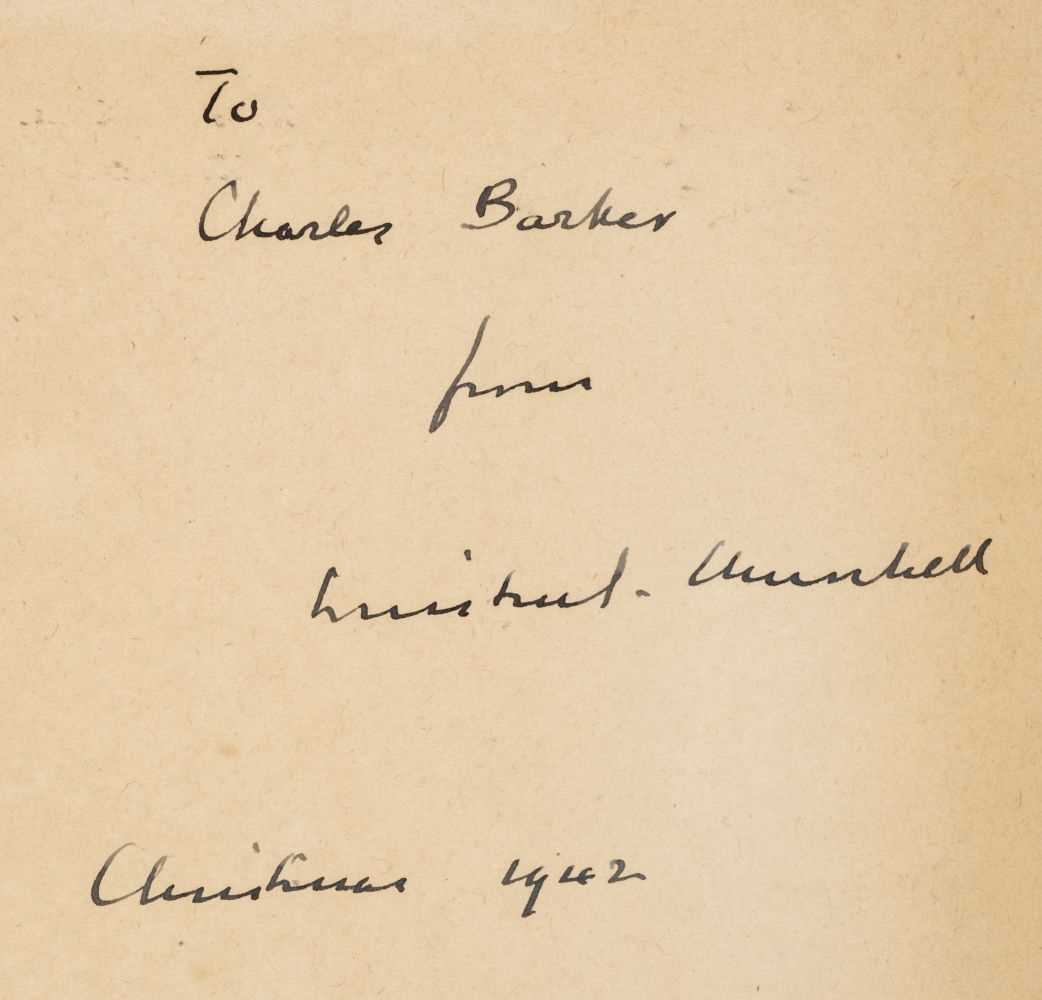 To
Charles Barker
from
Winston S. Churchill
Christmas 1942